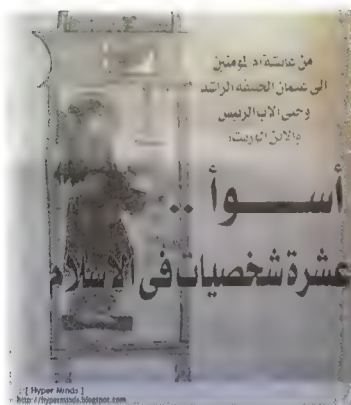 من عائشة ام المؤمنين
الى عثمان الخليفه الراشد
وحتى الاب الرئيس
والابن الوريث
أســوأ ..
عشرة شخصيات فى الاسلام
[ Hyper Minds ]
http://hyperminds.blogspot.com